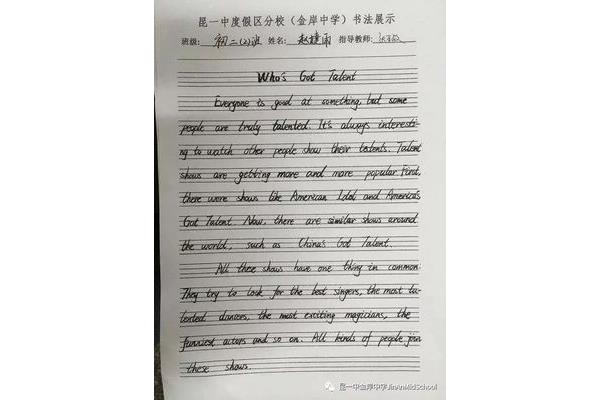 昆一中度假区分校（金岸中学）书法展示
班级: 初二(2)班 姓名: 赵建雨 指导教师:
Who's Got Talent
Everyone is good at something, but some
people are truly talented. It's always interesti-
ng to watch other people show their talents. Talent
shows are getting more and more popular. First,
there were shows like American Idol and America's
Got Talent. Now, there are similar shows around
the world, such as China's Got Talent.
All these shows have one thing in common:
They try to look for the best singers, the most ta-
lented dancers, the most exciting magicians, the
funniest actors and so on. All kinds of people join
these shows.
昆一中金岸中学JinAnMidSchool